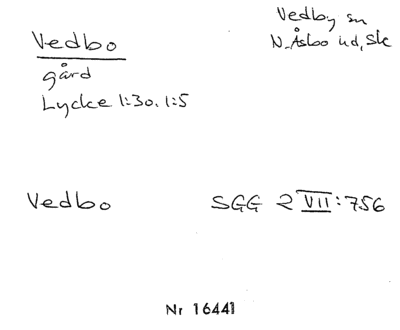 Vedbo
Vedby sn
N. Åsbo hd, Sk
gård
Lycke 1:30, 1:5
Vedbo SGG 2 VII:756
Nr 16441